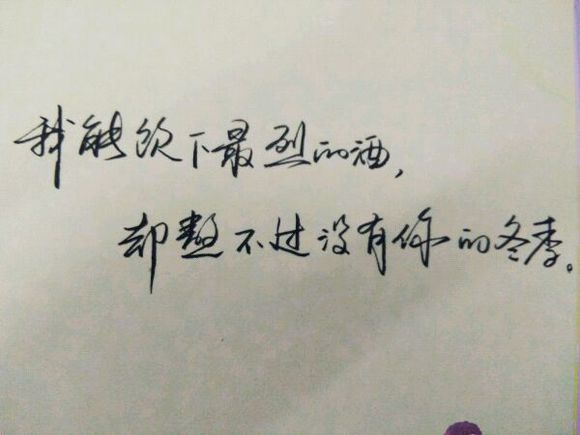 我能饮下最烈的酒，
却熬不过没有你的冬季。